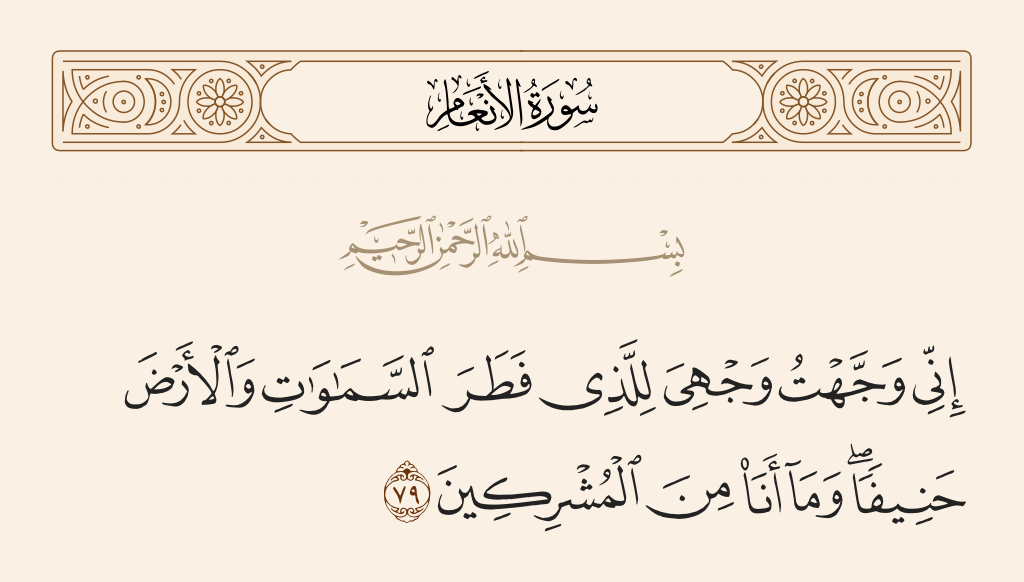 سُورَةُ الأَنْعَامِ
بِسْمِ ٱللَّهِ ٱلرَّحْمَٰنِ ٱلرَّحِيمِ
إِنِّى وَجَّهْتُ وَجْهِىَ لِلَّذِى فَطَرَ ٱلسَّمَٰوَٰتِ وَٱلْأَرْضَ
حَنِيفًاۖ وَمَآ أَنَا۠ مِنَ ٱلْمُشْرِكِينَ ٧٩